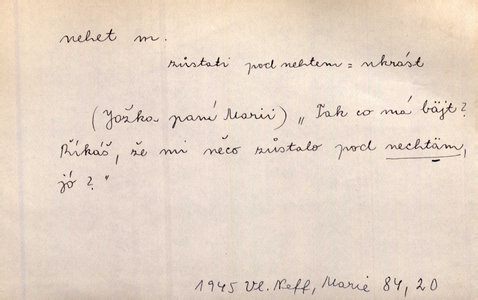 nehet m.
zůstati pod nehtem = ukrást
(Jožka paní Marii) „Tak co má bäjt?
Říkáš, že mi něčo zůstalo pod nechtäm,
jó?"
1945 Vl. Neff, Marie 84, 20